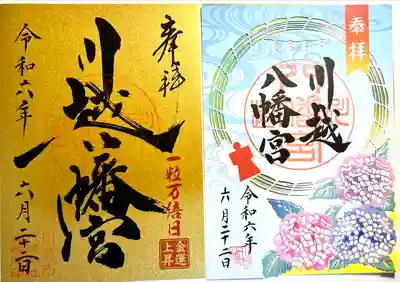 奉拝
川越八幡宮
一粒万倍日
金運
上昇
令和六年
六月二十二日
奉拝
川越
八幡宮
令和六年
六月二十二日